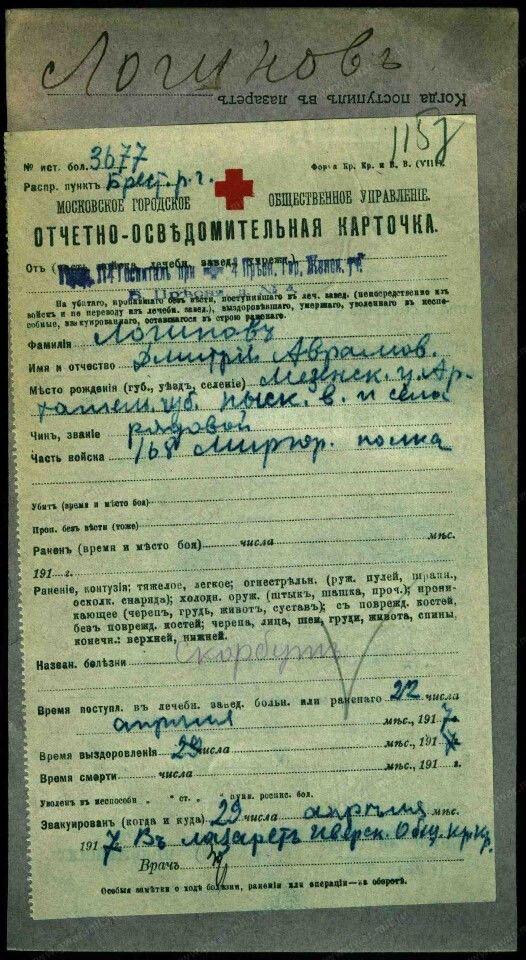 Логиновъ
Когда поступилъ въ лазаретъ
1157
№ ист. бол. 3677
Форма Кр. Кр. и В. В. (VII).
Распр. пунктъ Брест. р. г.
МОСКОВСКОЕ ГОРОДСКОЕ ОБЩЕСТВЕННОЕ УПРАВЛЕНІЕ.
ОТЧЕТНО-ОСВѢДОМИТЕЛЬНАЯ КАРТОЧКА.
Отъ
На убитаго, пропавшаго безъ вѣсти, поступившаго въ леч. завед. (непосредственно изъ
войскъ и по переводу изъ лечебн. завед.), выздоровѣвшаго, умершаго, уволеннаго въ неспо-
собные, эвакуированнаго, оставшагося въ строю раненаго.
Фамилія Логиновъ
Имя и отчество Дмитрій Аврамов.
Мѣсто рожденія (губ., уѣздъ, селеніе) Мезенск. у. Ар-
губ. в. и село
Чинъ, званіе рядовой
Часть войска 168 Миргор. полка
Убитъ (время и мѣсто боя)
Проп. безъ вѣсти (тоже)
Раненъ (время и мѣсто боя) числа мѣс.
191 г.
Раненіе, контузія; тяжелое, легкое; огнестрѣльн. (руж. пулей, шрапн.,
осколк. снаряда); холодн. оруж. (штыкъ, шашка, проч.); прони-
кающее (черепъ, грудь, животъ, суставъ); съ поврежд. костей,
безъ поврежд. костей; черепа, лица, шеи, груди, живота, спины,
конечн.: верхней, нижней.
Назван. болѣзни Скорбутъ
Время поступл. въ лечебн. завед. больн. или раненаго 22 числа
апрѣля мѣс., 1917 г.
Время выздоровленія 29 числа мѣс., 1917
Время смерти числа мѣс., 191 г.
Уволенъ въ неспособн. „ „ ст. „ „ пункт. роспис. бол.
Эвакуированъ (когда и куда) 29 числа апрѣля мѣс.
1917 Въ лазаретъ Иверск. Общ. Кр. Кр.
Врачъ
Особыя замѣтки о ходѣ болѣзни, раненіи или операціи—на оборотѣ.